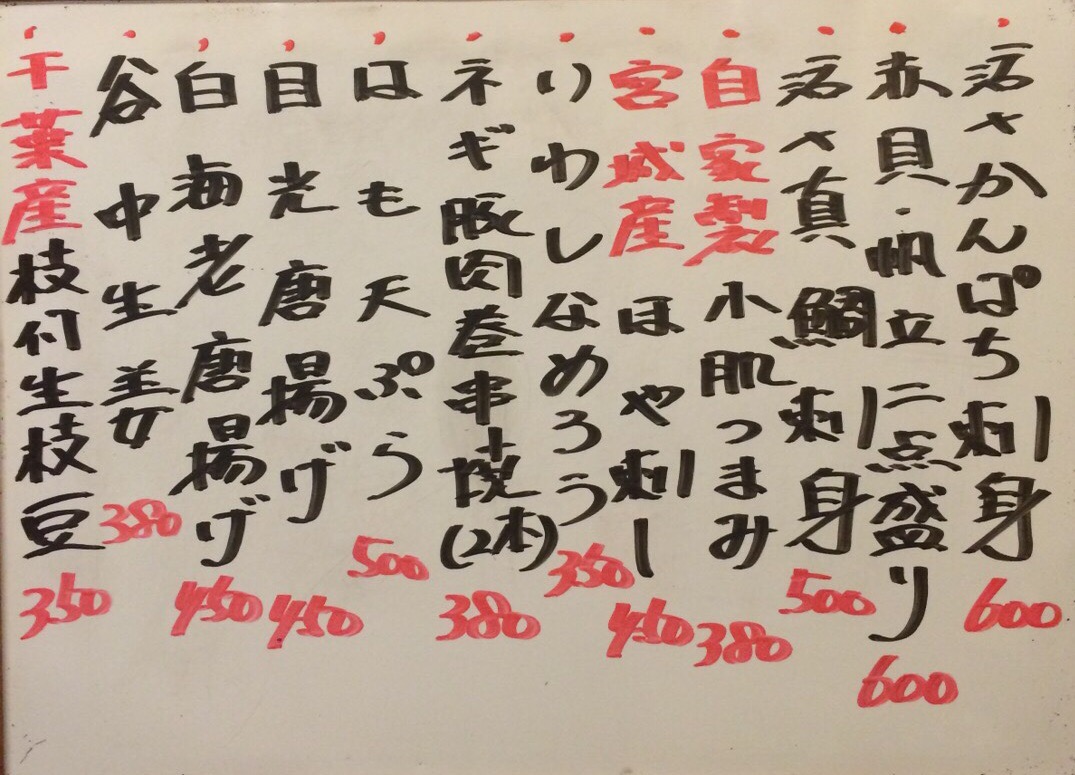 ・活〆かんぱち刺身 600
・赤貝・帆立二点盛り 600
・活〆真鯛刺身 500
・自家製小肌つまみ 380
・宮城産ほや刺し 450
・いわしなめろう 350
・ネギ豚肉巻串焼(2本) 380
・はも天ぷら 500
・目光唐揚げ 450
・白海老唐揚げ 450
・谷中生姜 380
・千葉産枝付生枝豆 350